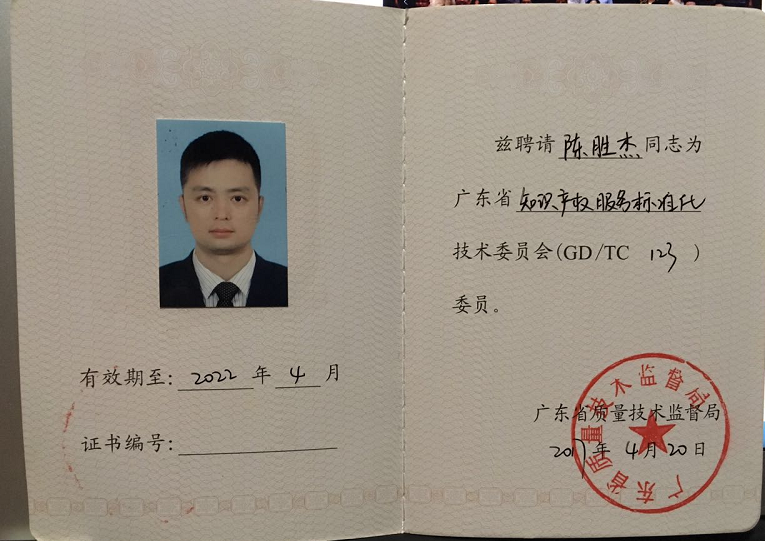 有效期至：2022年4月
证书编号：
兹聘请陈胜杰同志为
广东省知识产权服务标准化
技术委员会(GD/TC 123)
委员。
广东省质量技术监督局
2017年4月20日
广东省质量技术监督局